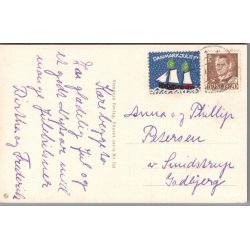 Kære begge to
Den glædelig Jul og
et godt Nytaar med
mange Julehilsner
Birtha og Frederik
DANMARK JUL 1957
DANMARK
Anna og Phillip
Petersen
v. Smidstrup
Gadbjerg